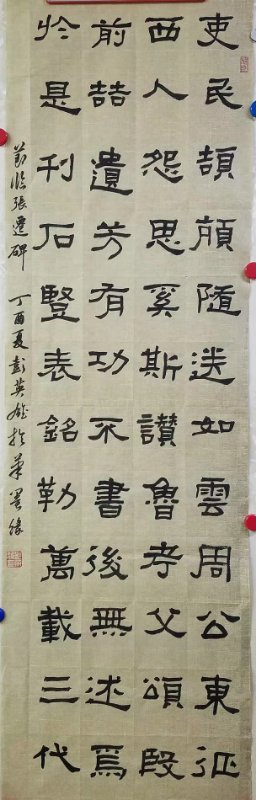 吏民頡頏隨送如雲周公東征
西人怨思奚斯讃魯考父頌殷
前喆遺芳有功不書後無述焉
於是刊石竪表銘勒萬載三代
節臨張遷碑 丁酉夏彭英 於 墨緣